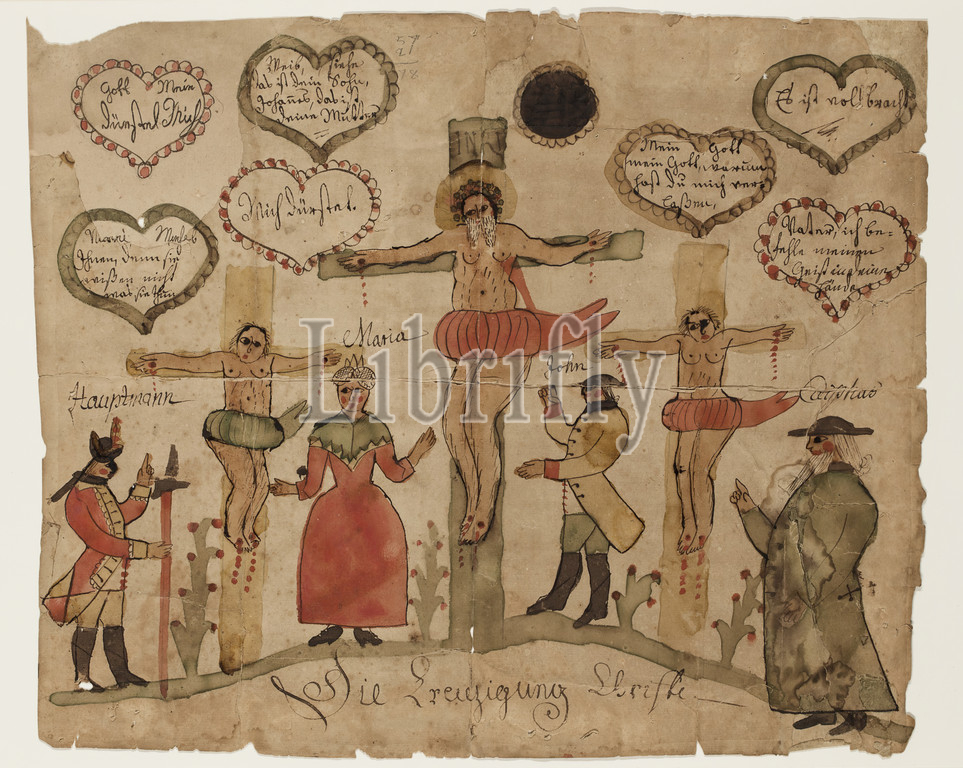 Gott Mein
dürstet Mich
Weib, siehe
das ist dein Sohn,
Johannes, das ist
deine Mutter
Es ist volbracht
Mein Gott
mein Gott, warum
hast du mich ver-
laßen,
Mich dürstet.
Vater, ich be-
fehle meinen
Geist in deine
Hände
ihnen, denn sie
wißen nicht
was sie thun
INRI
Maria
John
Hauptmann
Caiphas
Librifly
Die Creuzigung Christi